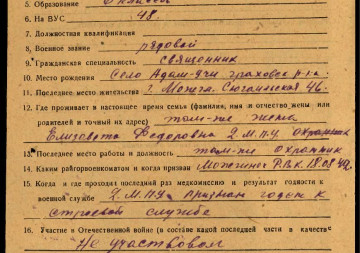 5. Образование
6. На ВУС 48
7. Должностная квалификация
8. Военное звание рядовой
9. Гражданская специальность священник
10. Место рождения село Адам-учи граховск р-на
11. Последнее место жительства г. Можга. Сюгаильская 46.
12. Где проживает в настоящее время семья (фамилия, имя и отчество жены или
родителей и точный их адрес) там-же жена
Елизавета Федоровна
13. Последнее место работы и должность там-же охранник
14. Каким райгорвоенкоматом и когда призван Можгинск Р.В.К. 18.08.42
15. Когда и где проходил последний раз медкомиссию и результат годности к
военной службе признан годен к
строевой службе
16. Участие в Отечественной войне (в составе какой последней части в качестве
Не участвовал